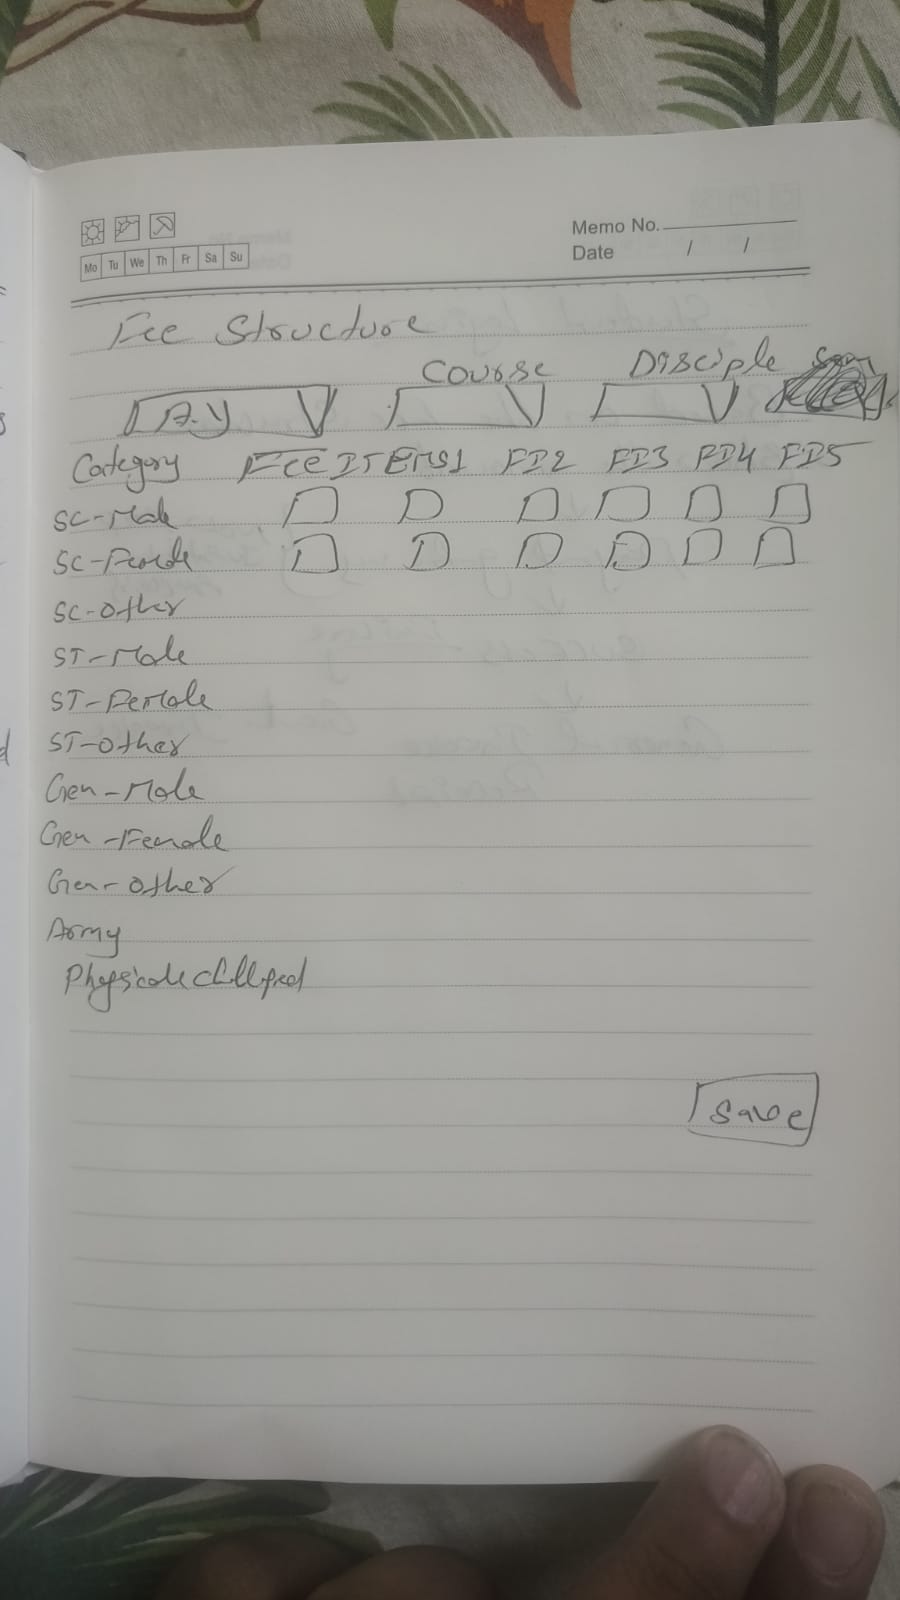 Mo Tu We Th Fr Sa Su
Memo No.
Date / /
Fee Structure
Course Disciple Sem
A.Y
Category Fee ITEMS1 FI2 FI3 FI4 FI5
SC-Male
SC-Female
SC-Other
ST-Male
ST-Female
ST-Other
Gen-Male
Gen-Female
Gen-Other
Army
Save